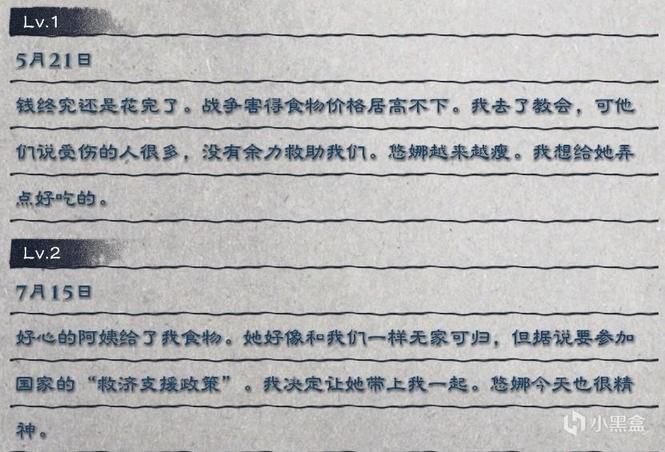 Lv.1
5月21日
钱终究还是花完了。战争害得食物价格居高不下。我去了教会，可他
们说受伤的人很多，没有余力救助我们。悠娜越来越瘦。我想给她弄
点好吃的。
Lv.2
7月15日
好心的阿姨给了我食物。她好像和我们一样无家可归，但据说要参加
国家的“救济支援政策”。我决定让她带上我一起。悠娜今天也很精
神。
小黑盒